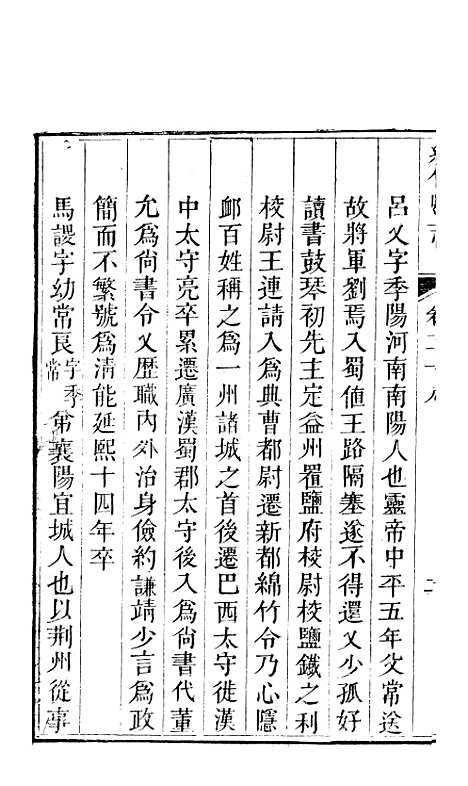 呂乂字季陽河南南陽人也靈帝中平五年父常送
故將軍劉焉入蜀値王路隔塞遂不得還乂少孤好
讀書鼓琴初先主定益州置鹽府校尉校鹽鐵之利
校尉王連請入爲典曹都尉遷新都綿竹令乃心隱
卹百姓稱之爲一州諸城之首後遷巴西太守徙漢
中太守亮卒累遷廣漢蜀郡太守後入爲尚書代董
允爲尚書令乂歷職內外治身儉約謙靖少言爲政
簡而不繁號爲淸能延熙十四年卒
馬謖字幼常良字季常弟襄陽宜城人也以荆州從事